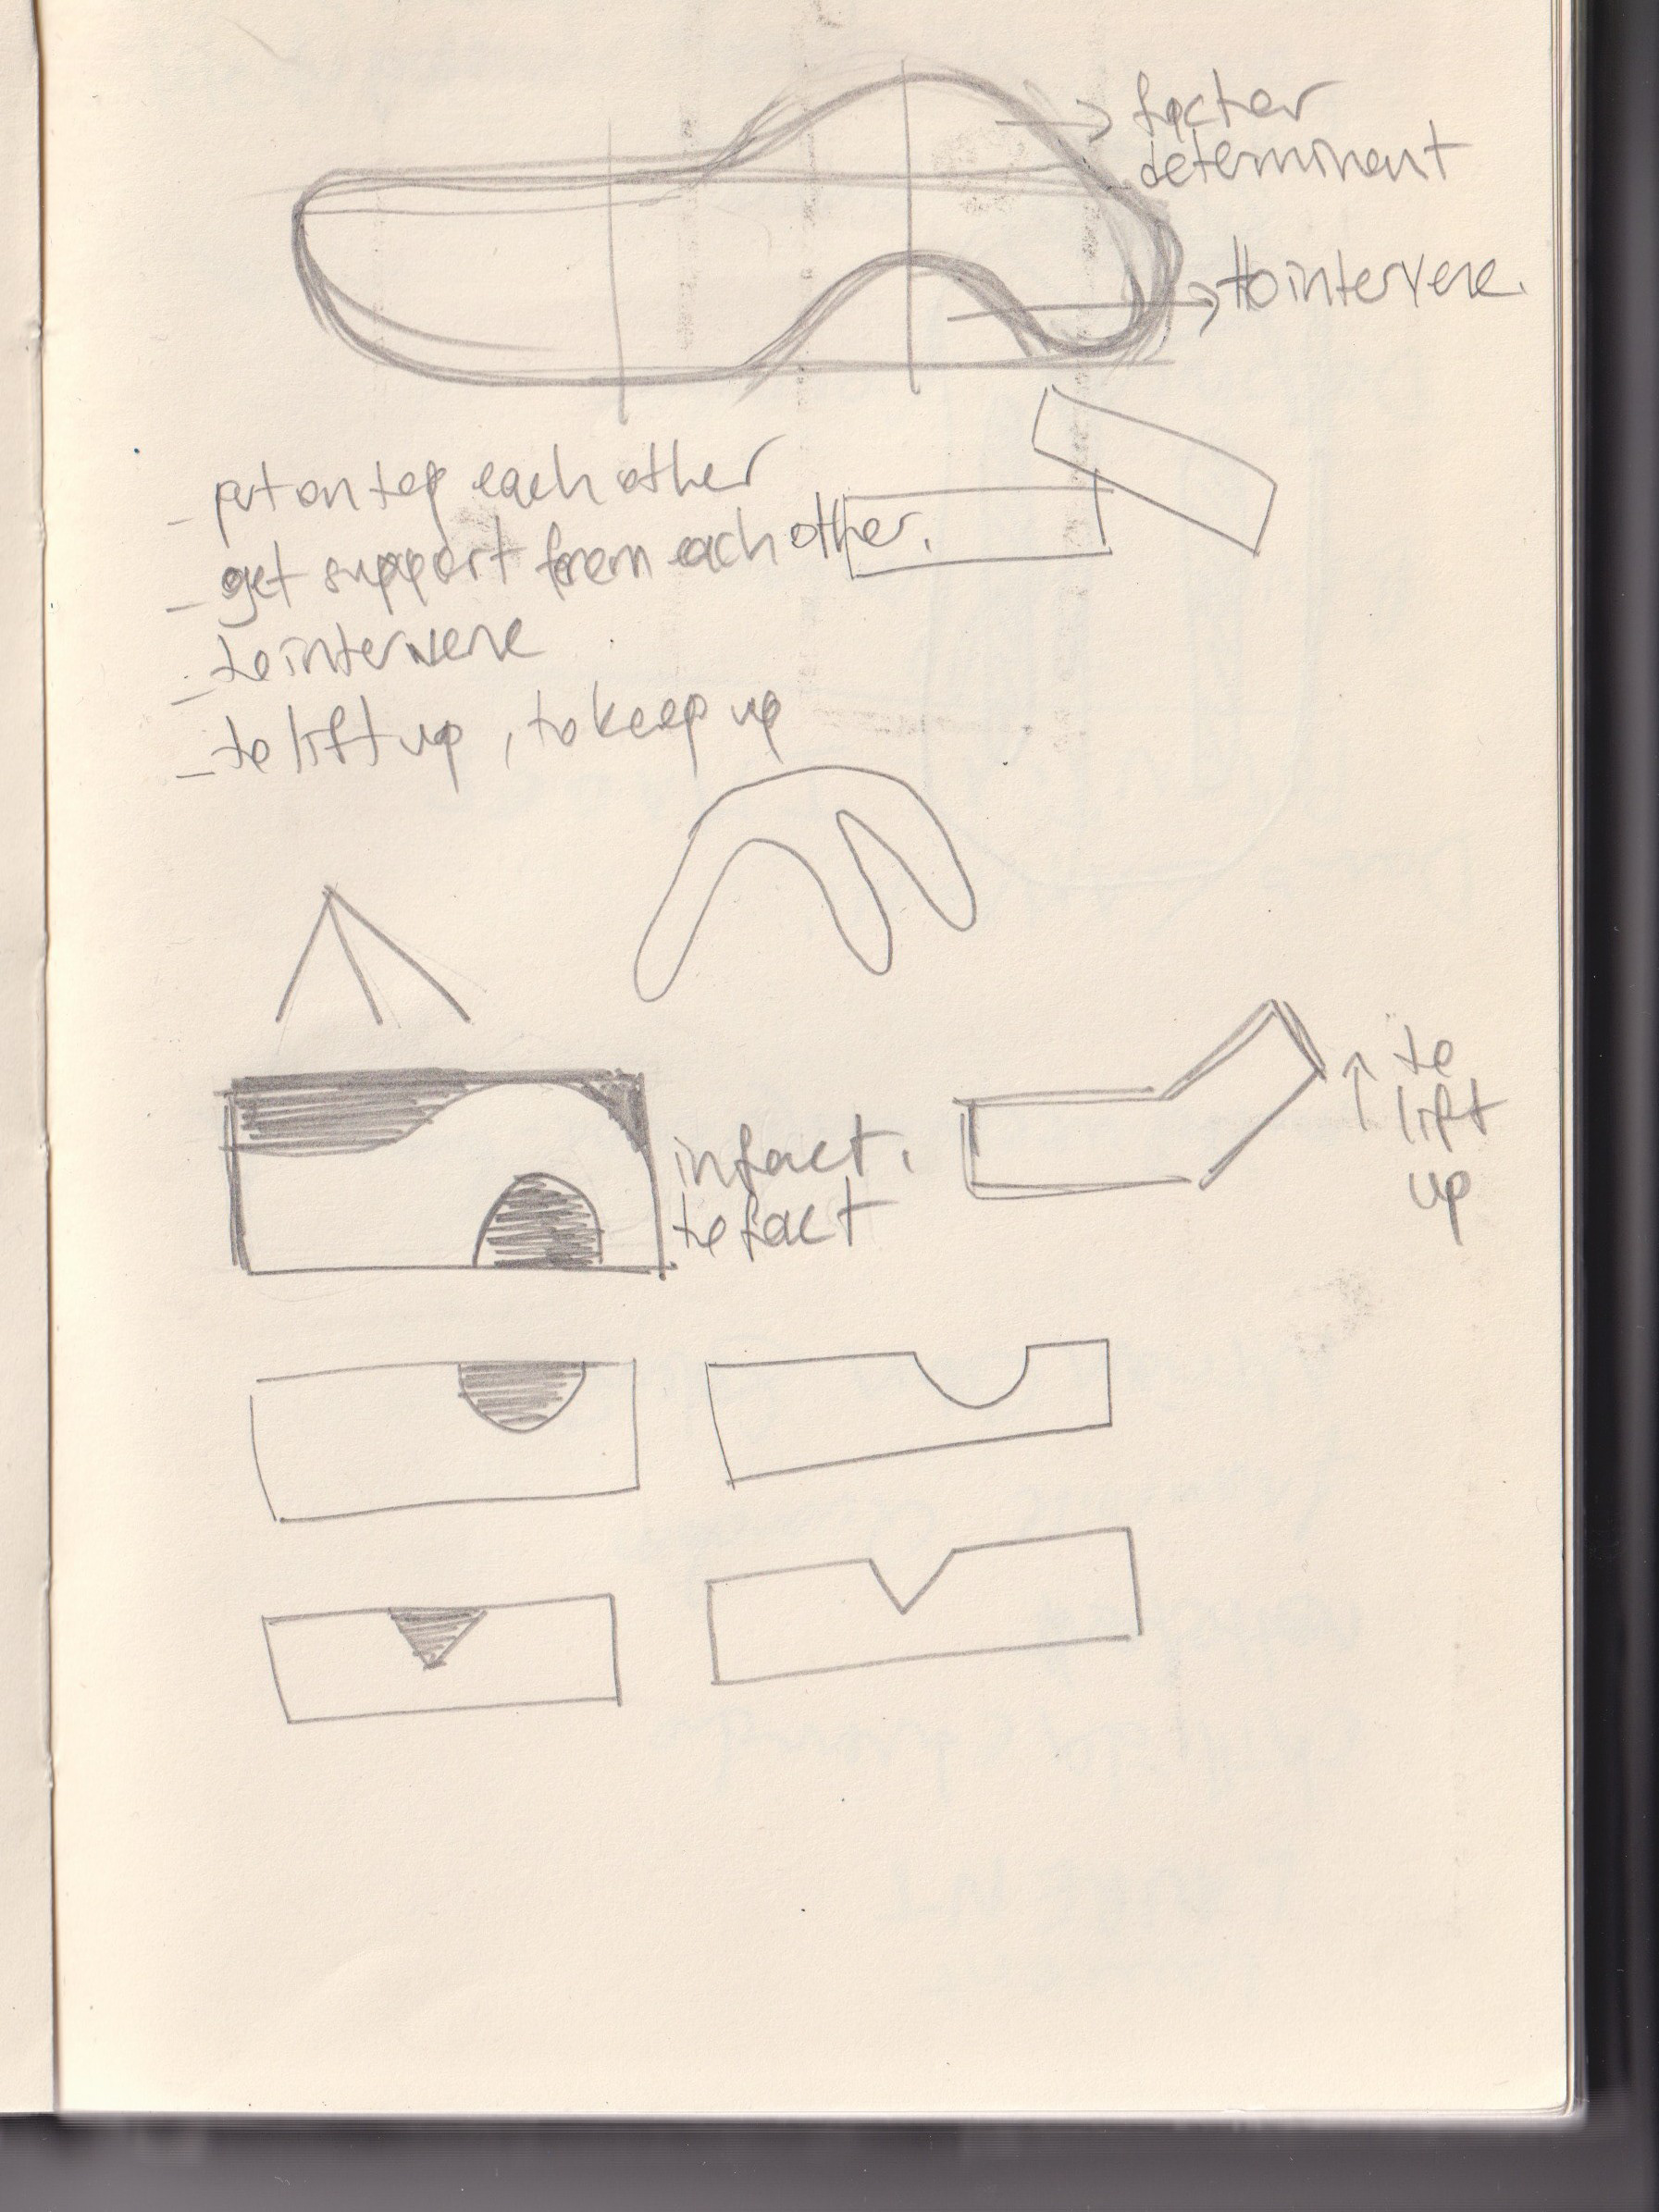 factor
determinant
to intervene.
- put on top each other
- get support from each other.
- to intervene
- to lift up, to keep up
to
lift
up
infact.
to fact